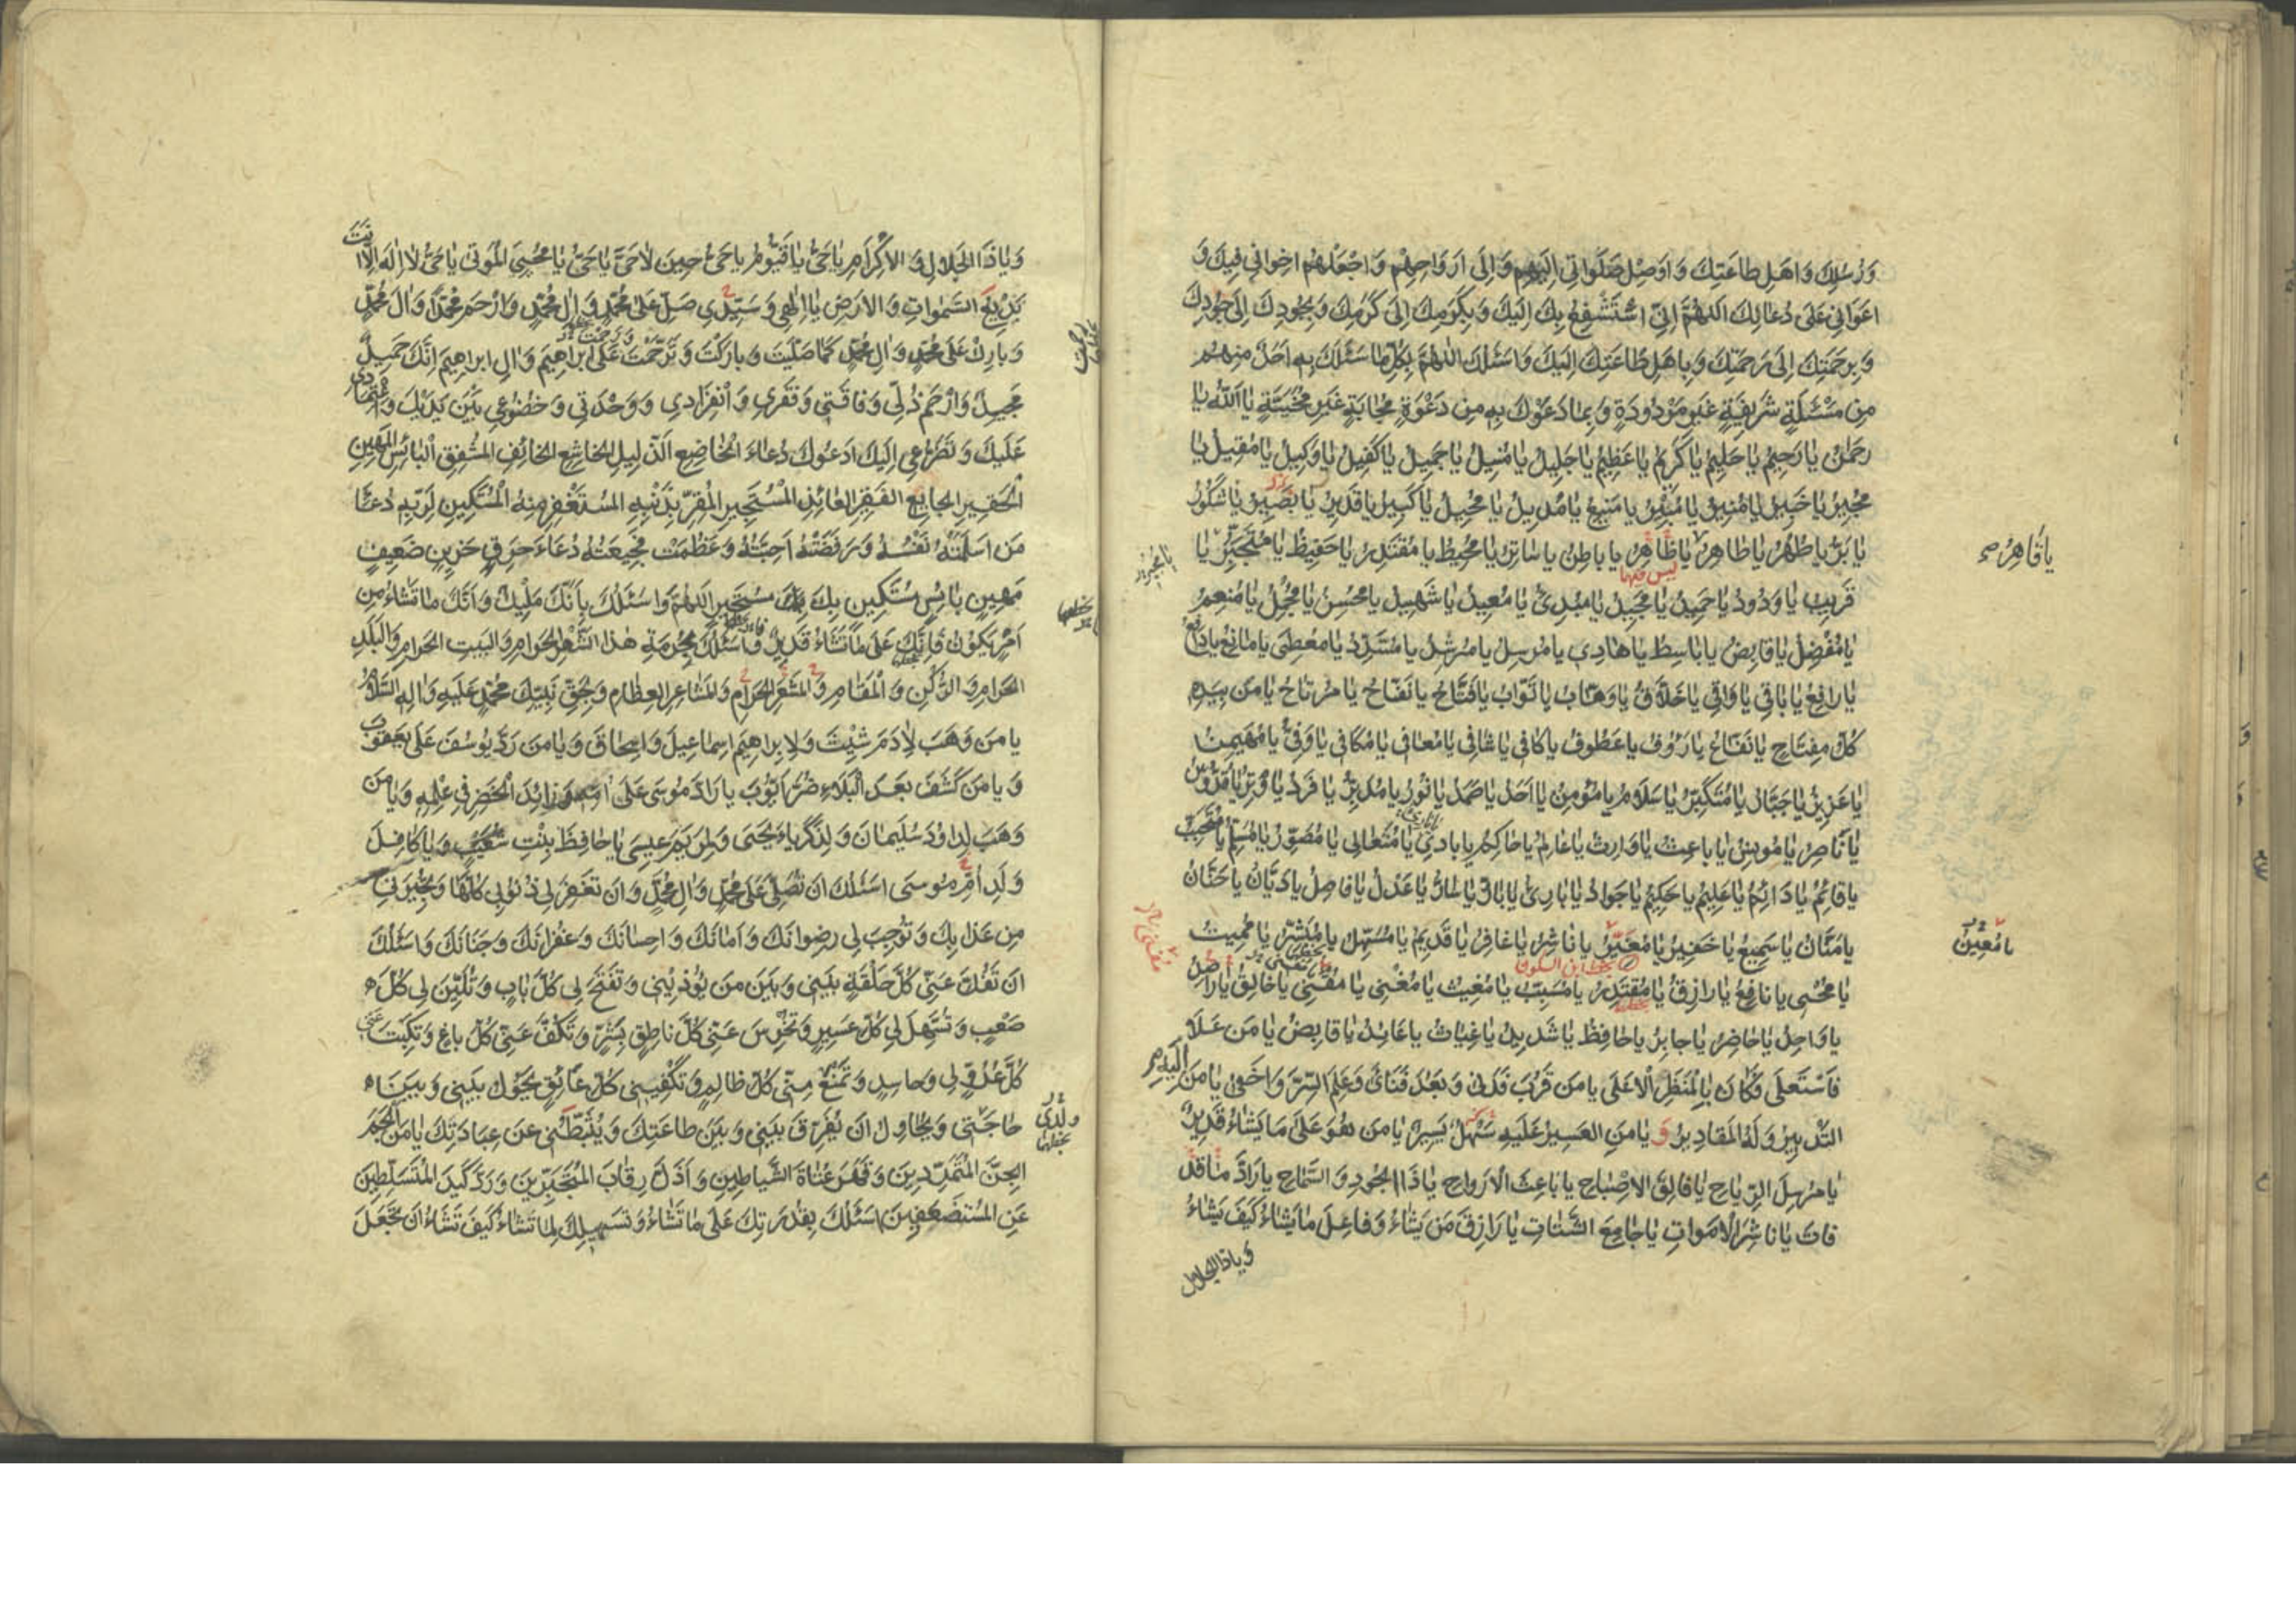 وَرُسُلِكَ وَاَهْلِ طاعَتِكَ وَاَوْصِلْ صَلَواتِي اِلَيْهِمْ وَاِلَى اَرْواحِهِمْ وَاجْعَلْهُمْ اِخْوانِي فِيكَ وَ
اَعْوانِي عَلى دُعائِكَ اَللّهُمَّ اِنّي اَسْتَشْفِعُ بِكَ اِلَيْكَ وَبِكَرَمِكَ اِلى كَرَمِكَ وَبِجُودِكَ اِلى جُودِكَ
وَبِرَحْمَتِكَ اِلى رَحْمَتِكَ وَبِاَهْلِ طاعَتِكَ اِلَيْكَ وَاَسْئَلُكَ اللّهُمَّ بِكُلِّ ما سَئَلَكَ بِهِ اَحَدٌ مِنْهُمْ
مِنْ مَسْئَلَةٍ شَرِيفَةٍ غَيْرِ مَرْدُودَةٍ وَبِما دَعَوْكَ بِهِ مِنْ دَعْوَةٍ مُجابَةٍ غَيْرِ مُخَيَّبَةٍ يا اَللّهُ يا
رَحْمنُ يا رَحِيمُ يا حَلِيمُ يا كَرِيمُ يا عَظِيمُ يا جَلِيلُ يا مُنِيلُ يا جَمِيلُ يا كَفِيلُ يا وَكِيلُ يا مُقِيلُ يا
مُجِيرُ يا خَبِيرُ يا مُنِيرُ يا مُبِيرُ يا مَنِيعُ يا مُدِيلُ يا مُحِيلُ يا كَبِيرُ يا قَدِيرُ يا بَصِيرُ يا شَكُورُ
يا بَرُّ يا طُهْرُ يا طاهِرُ يا ظاهِرُ يا باطِنُ يا ساتِرُ يا مُحِيطُ يا مُقْتَدِرُ يا حَفِيظُ يا مُتَجَبِّرُ يا
يا قاهِرُ
قَرِيبُ يا وَدُودُ يا حَمِيدُ يا مَجِيدُ يا مُبْدِئُ يا مُعِيدُ يا شَهِيدُ يا مُحْسِنُ يا مُجْمِلُ يا مُنْعِمُ
يا مُفْضِلُ يا قابِضُ يا باسِطُ يا هادِي يا مُرْسِلُ يا مُرْشِدُ يا مُسَدِّدُ يا مُعْطِي يا مانِعُ يا دافِعُ
يا رافِعُ يا باقِي يا واقِي يا خَلّاقُ يا وَهّابُ يا تَوّابُ يا فَتّاحُ يا نَفّاحُ يا مُرْتاحُ يا مَنْ بِيَدِهِ
كُلُّ مِفْتاحٍ يا نَفّاعُ يا رَؤُوفُ يا عَطُوفُ يا كافِي يا شافِي يا مُعافِي يا مُكافِي يا وَفِيُّ يا مُهَيْمِنُ
يا عَزِيزُ يا جَبّارُ يا مُتَكَبِّرُ يا سَلامُ يا مُؤْمِنُ يا اَحَدُ يا صَمَدُ يا نُورُ يا مُدَبِّرُ يا فَرْدُ يا وِتْرُ يا قُدُّوسُ
يا ناصِرُ يا مُونِسُ يا باعِثُ يا وارِثُ يا عالِمُ يا حاكِمُ يا بادِي يا مُتَعالِي يا مُصَوِّرُ يا مُسَلِّمُ يا مُتَحَبِّبُ
يا قائِمُ يا دائِمُ يا عَلِيمُ يا حَكِيمُ يا جَوادُ يا بارِئُ يا بارُّ يا سارُّ يا عَدْلُ يا فاصِلُ يا دَيّانُ يا حَنّانُ
يا مَنّانُ يا سَمِيعُ يا خَفِيرُ يا مُغَيِّرُ يا ناشِرُ يا غافِرُ يا قَدِيمُ يا مُسَهِّلُ يا مُيَسِّرُ يا مُمِيتُ
يا مُعِينُ
يا مُحْيِي يا نافِعُ يا رازِقُ يا مُقْتَدِرُ يا مُسَبِّبُ يا مُغِيثُ يا مُغْنِي يا مُقْنِي يا خالِقُ يا راصِدُ
بخط ابن السكون
يا واحِدُ يا حاضِرُ يا جابِرُ يا حافِظُ يا شَدِيدُ يا غِياثُ يا عائِدُ يا قابِضُ يا مَنْ عَلا
فَاسْتَعْلى فَكانَ بِالْمَنْظَرِ الْاَعْلى يا مَنْ قَرُبَ فَدَنى وَبَعُدَ فَنَأى وَعَلِمَ السِّرَّ وَاَخْفى يا مَنْ اِلَيْهِ
التَّدْبِيرُ وَلَهُ الْمَقادِيرُ وَ يا مَنِ الْعَسِيرُ عَلَيْهِ سَهْلٌ يَسِيرٌ يا مَنْ هُوَ عَلى ما يَشاءُ قَدِيرٌ
يا مُرْسِلَ الرِّياحِ يا فالِقَ الْاِصْباحِ يا باعِثَ الْاَرْواحِ يا ذَا الْجُودِ وَالسَّماحِ يا رادَّ ما قَدْ
فاتَ يا ناشِرَ الْاَمْواتِ يا جامِعَ الشَّتاتِ يا رازِقَ مَنْ يَشاءُ وَفاعِلَ ما يَشاءُ كَيْفَ يَشاءُ
وَيا ذَا الْجَلالِ
وَيا ذَا الْجَلالِ وَالْاِكْرامِ يا حَيُّ يا قَيُّومُ يا حَيُّ حِينَ لا حَيَّ يا حَيُّ يا مُحْيِيَ الْمَوْتى يا حَيُّ لا اِلهَ اِلّا اَنْتَ
بَدِيعُ السَّمواتِ وَالْاَرْضِ يا اِلهِي وَسَيِّدِي صَلِّ عَلى مُحَمَّدٍ وَآلِ مُحَمَّدٍ وَارْحَمْ مُحَمَّدًا وَآلَ مُحَمَّدٍ
وَبارِكْ عَلى مُحَمَّدٍ وَآلِ مُحَمَّدٍ كَما صَلَّيْتَ وَبارَكْتَ وَتَرَحَّمْتَ عَلى اِبْراهِيمَ وَآلِ اِبْراهِيمَ اِنَّكَ حَمِيدٌ
مَجِيدٌ وَارْحَمْ ذُلِّي وَفاقَتِي وَفَقْرِي وَانْفِرادِي وَوَحْدَتِي وَخُضُوعِي بَيْنَ يَدَيْكَ وَاعْتِمادِي
عَلَيْكَ وَتَضَرُّعِي اِلَيْكَ اَدْعُوكَ دُعاءَ الْخاضِعِ الذَّلِيلِ الْخاشِعِ الْخائِفِ الْمُشْفِقِ الْبائِسِ الْمَهِينِ
الْحَقِيرِ الْجايِعِ الْفَقِيرِ الْعائِذِ الْمُسْتَجِيرِ الْمُقِرِّ بِذَنْبِهِ الْمُسْتَغْفِرِ مِنْهُ الْمُسْتَكِينِ لِرَبِّهِ دُعاءَ
مَنْ اَسْلَمَتْهُ نَفْسُهُ وَرَفَضَتْهُ اَحِبَّتُهُ وَعَظُمَتْ فَجِيعَتُهُ دُعاءَ حَرِقٍ حَزِينٍ ضَعِيفٍ
مَهِينٍ بائِسٍ مُسْتَكِينٍ بِكَ مُسْتَجِيرٍ اَللّهُمَّ وَاَسْئَلُكَ بِاَنَّكَ مَلِيكٌ وَاَنَّكَ ما تَشاءُ مِنْ
اَمْرٍ يَكُونُ فَاِنَّكَ عَلى ما تَشاءُ قَدِيرٌ وَاَسْئَلُكَ بِحُرْمَةِ هذَا الشَّهْرِ الْحَرامِ وَالْبَيْتِ الْحَرامِ وَالْبَلَدِ
الْحَرامِ وَالرُّكْنِ وَالْمَقامِ وَالْمَشْعَرِ الْحَرامِ وَالْمَشاعِرِ الْعِظامِ وَبِحَقِّ نَبِيِّكَ مُحَمَّدٍ عَلَيْهِ وَآلِهِ السَّلامُ
يا مَنْ وَهَبَ لِآدَمَ شِيْثَ وَلِاِبْراهِيمَ اِسْماعِيلَ وَاِسْحاقَ وَيا مَنْ رَدَّ يُوسُفَ عَلى يَعْقُوبَ
وَيا مَنْ كَشَفَ بَعْدَ الْبَلاءِ ضُرَّ اَيُّوبَ يا رادَّ مُوسى عَلى اُمِّهِ وَزائِدَ الْخَضِرِ فِي عِلْمِهِ وَيا مَنْ
وَهَبَ لِداوُدَ سُلَيْمانَ وَلِزَكَرِيّاءَ يَحْيى وَلِمَرْيَمَ عِيسى يا حافِظَ بِنْتِ شُعَيْبٍ وَيا كافِلَ
وَلَدِ اُمِّ مُوسى اَسْئَلُكَ اَنْ تُصَلِّيَ عَلى مُحَمَّدٍ وَآلِ مُحَمَّدٍ وَاَنْ تَغْفِرَ لِي ذُنُوبِي كُلَّها وَتُجِيرَنِي
مِنْ عَذابِكَ وَتُوجِبَ لِي رِضْوانَكَ وَاَمانَكَ وَاِحْسانَكَ وَغُفْرانَكَ وَجَنانَكَ وَاَسْئَلُكَ
اَنْ تَفُكَّ عَنّي كُلَّ حَلْقَةٍ بَيْنِي وَبَيْنَ مَنْ يُؤْذِينِي وَتَفْتَحَ لِي كُلَّ بابٍ وَتُلَيِّنَ لِي كُلَّ
صَعْبٍ وَتُسَهِّلَ لِي كُلَّ عَسِيرٍ وَتُخْرِسَ عَنّي كُلَّ ناطِقٍ بِشَرٍّ وَتَكُفَّ عَنّي كُلَّ باغٍ وَتَكْبِتَ عَنّي
كُلَّ عَدُوٍّ لِي وَحاسِدٍ وَتَمْنَعَ مِنّي كُلَّ ظالِمٍ وَتَكْفِيَنِي كُلَّ عائِقٍ يَحُولُ بَيْنِي وَبَيْنَ
حاجَتِي وَيُحاوِلُ اَنْ يُفَرِّقَ بَيْنِي وَبَيْنَ طاعَتِكَ وَيُثَبِّطَنِي عَنْ عِبادَتِكَ يا مَنْ اَلْجَمَ
الْجِنَّ الْمُتَمَرِّدِينَ وَقَهَرَ عُتاةَ الشَّياطِينِ وَاَذَلَّ رِقابَ الْمُتَجَبِّرِينَ وَرَدَّ كَيْدَ الْمُتَسَلِّطِينَ
عَنِ الْمُسْتَضْعَفِينَ اَسْئَلُكَ بِقُدْرَتِكَ عَلى ما تَشاءُ وَتَسْهِيلِكَ لِما تَشاءُ كَيْفَ تَشاءُ اَنْ تَجْعَلَ